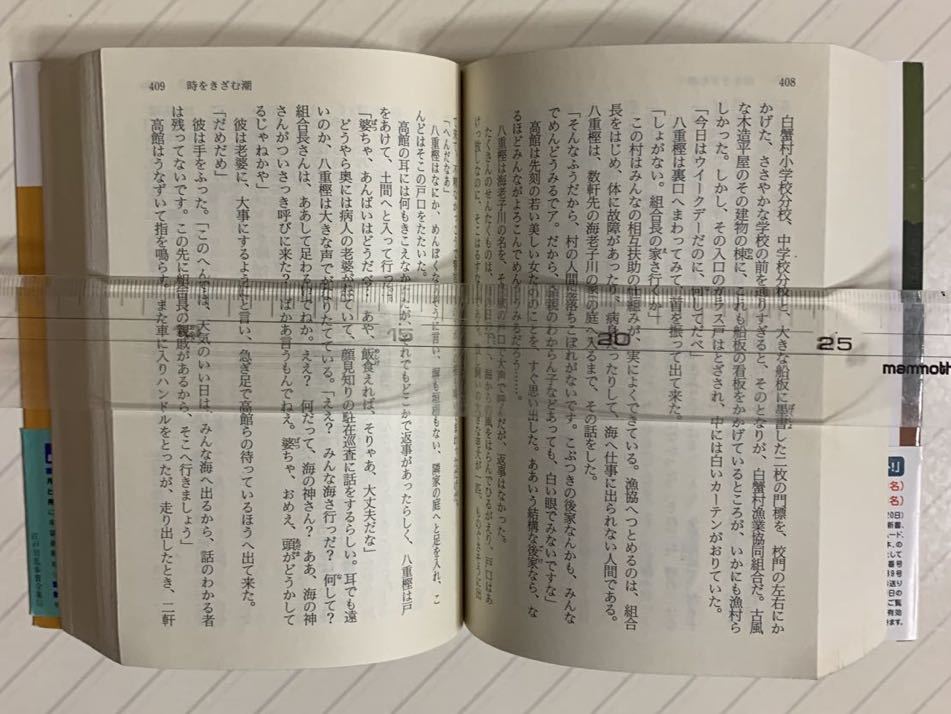 408
白蟹村小学校分校、中学校分校と、大きな船板に墨書した二枚の門標を、校門の左右にか
かげた、ささやかな学校の前を通りすぎると、そのとなりが、白蟹村漁業協同組合だ。古風
な木造平屋のその建物の棟に、これも船板の看板をかかげているところが、いかにも漁村ら
しかった。しかし、その入口のガラス戸はとざされ、中には白いカーテンがおりていた。
「今日はウイークデーだのに、何してだべ」
八重樫は裏口へまわってみて、首を振って出て来た。
「しょがない。組合長の家さ行くか」
この村の漁協はみんなの相互扶助の仕組みが、実によくできている。漁協へつとめるのは、組合
長をはじめ、体に故障があったり、病身だったりして、海へ仕事に出られない人間である。
八重樫は、数軒先の海老子川の家の庭へ入るまで、その話をした。
「そんなふうだから、村の人間に落ちこぼれがないです。こぶつきの後家なんかも、みんな
でめんどうみるでア。だから、父親のわからん子などあっても、白い眼でみないですな」
高館は先刻の若い美しい女たちのことを、すぐ思い出した。ああいう結構な後家なら、な
るほどみんながよろこんでめんどうみるだろう……。
八重樫は海老子川の名を、その家の戸口で大声で呼んだが、返事はなかった。
たくさんのせんたくものは、海からの風をはらんでひるがえり、戸口はあ
409
時をきざむ潮
「へんだなあ」
八重樫はなにか、めんぼくなさそうに言い、塀も垣根もない、隣家の庭へと足を入れ、こ
んどはそこの戸口をたたいた。
高館の耳には何もきこえなかったが、それでもどこかで返事があったらしく、八重樫は戸
をあけて、土間へと入って行った。
「婆ちゃ、あんばいはどうだや？ あや、飯食えれば、そりゃあ、大丈夫だな」
どうやら奥には病人の老婆がねていて、顔見知りの駐在巡査に話をするらしい。耳でも遠
いのか、八重樫は大きな声でがなりたてている。「ええ？ みんな海さ行っただ？ 何して？
組合長さんは、ああして足わるいでねか。ええ？ 何だって、海の神さん？ ああ、海の神
さんがついさっき呼びに来た？ ばかあ言うもんでねえ。婆ちゃ、おめえ、頭がどうかして
るじゃねかや」
彼は老婆に、大事にするようにと言い、急ぎ足で高館らの待っているほうへ出て来た。
「だめだめ」
彼は手をふった。「このへんでは、天気のいい日は、みんな海へ出るから、話のわかる者
は残ってないです。この先に組合長の親戚があるから、そこへ行きましょう」
高館はうなずいて指を鳴らす。また車に入りハンドルをとったが、走り出したとき、二軒
15
20
25
mammoth